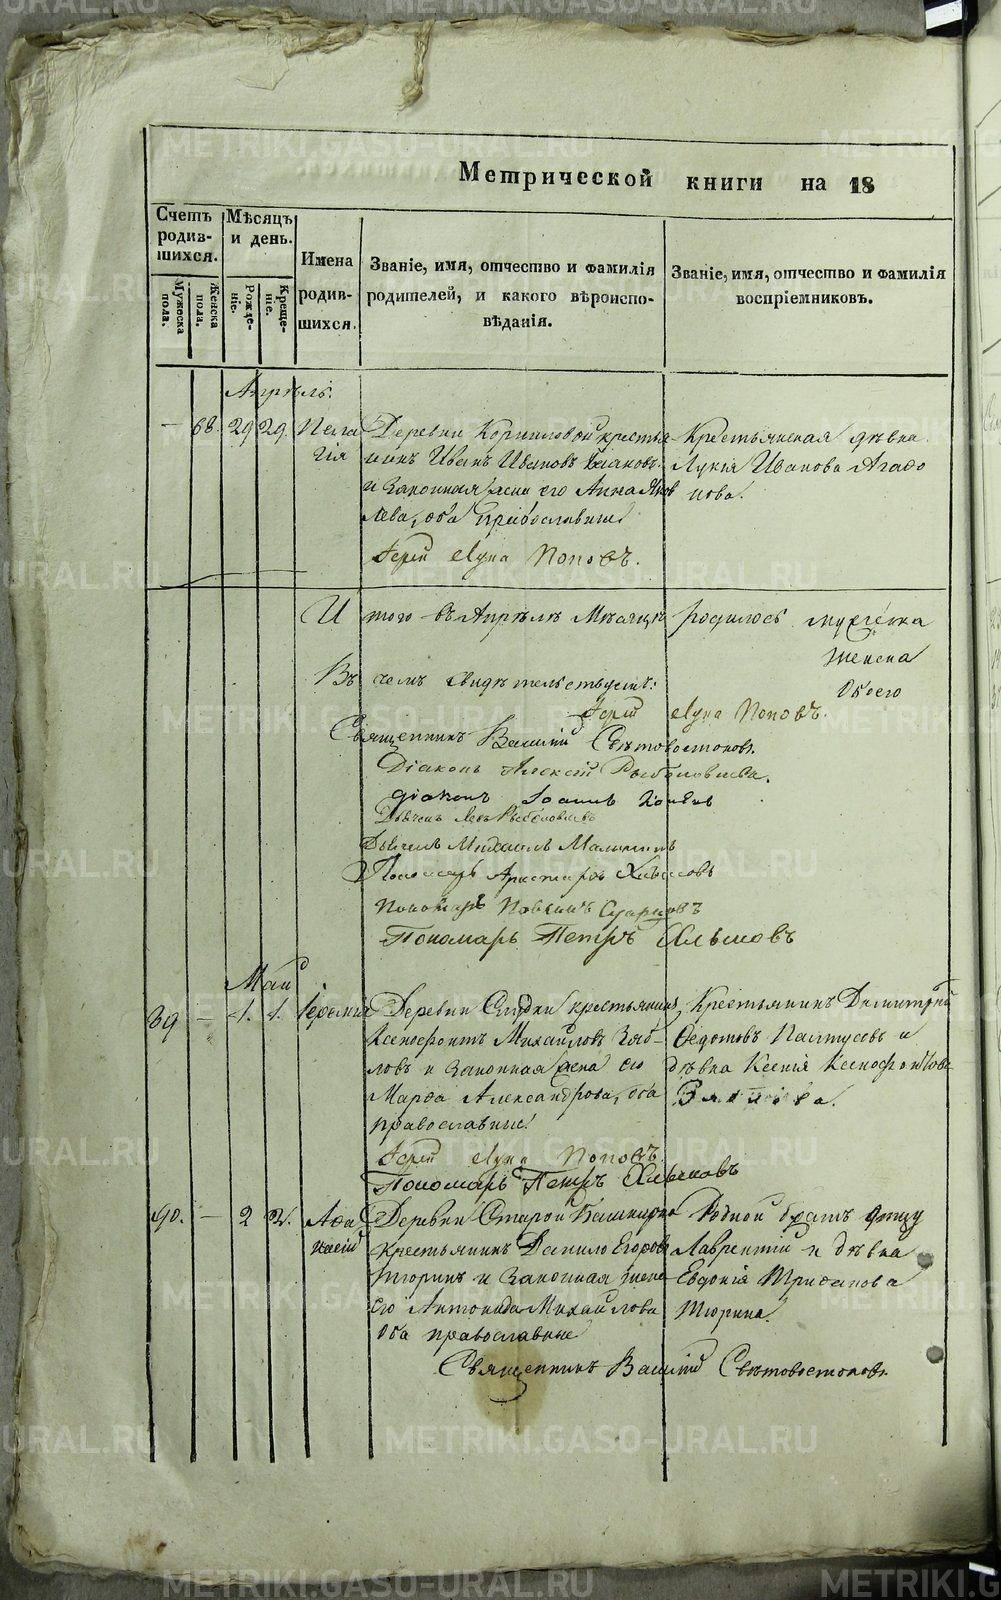 METRIKI.GASO-URAL.RU
Метрической книги на 18
Счетъ родив-шихся.
Мужеска пола.
Женска пола.
Мѣсяцъ и день.
Рожде-ніе.
Креще-ніе.
Имена родив-шихся.
Званіе, имя, отчество и фамилія
родителей, и какого вѣроиспо-
вѣданія.
Званіе, имя, отчество и фамилія
воспріемниковъ.
Апрѣль.
— 68. 29 29. Пела Деревни Корниловой крестья Крестьянская дѣвка
гія нинъ Иванъ Ивановъ Лукія Иванова Агафо
и законная жена его Анна Яков нова.
лева, оба православные
Іерей Лука Поповъ.
И того въ Апрѣлѣ Мѣсяцѣ родилось мужеска
женска
Въ чемъ свидѣтельствуемъ: обоего
Іерей Лука Поповъ.
Священникъ Василій Свѣтовостоковъ.
Діаконъ Алексѣй
Діаконъ Іоаннъ
Дьячекъ
Дьячекъ Михаилъ
Пономарь Аристархъ Хлыновъ
Пономарь
Пономарь Петръ Хлыновъ
Май
89 — 1. 1. Іеремія Деревни крестьянинъ Крестьянинъ Димитрій
Ксенофонтъ Михайловъ Зяб- Федотовъ Палтусовъ и
ловъ и законная жена его дѣвка Ксенія Ксенофонтова
Марфа Александрова, оба
православные
Іерей Лука Поповъ.
Пономарь Петръ Хлыновъ
90. — 2 2. Афа Деревни Старой Башкирки Родной братъ отцу
насій крестьянинъ Данило Егоровъ Лаврентій и дѣвка
Тюринъ и законная жена Евдокія Трифонова
его Антонида Михайлова Тюрина.
оба православные
Священникъ Василій Свѣтовостоковъ.